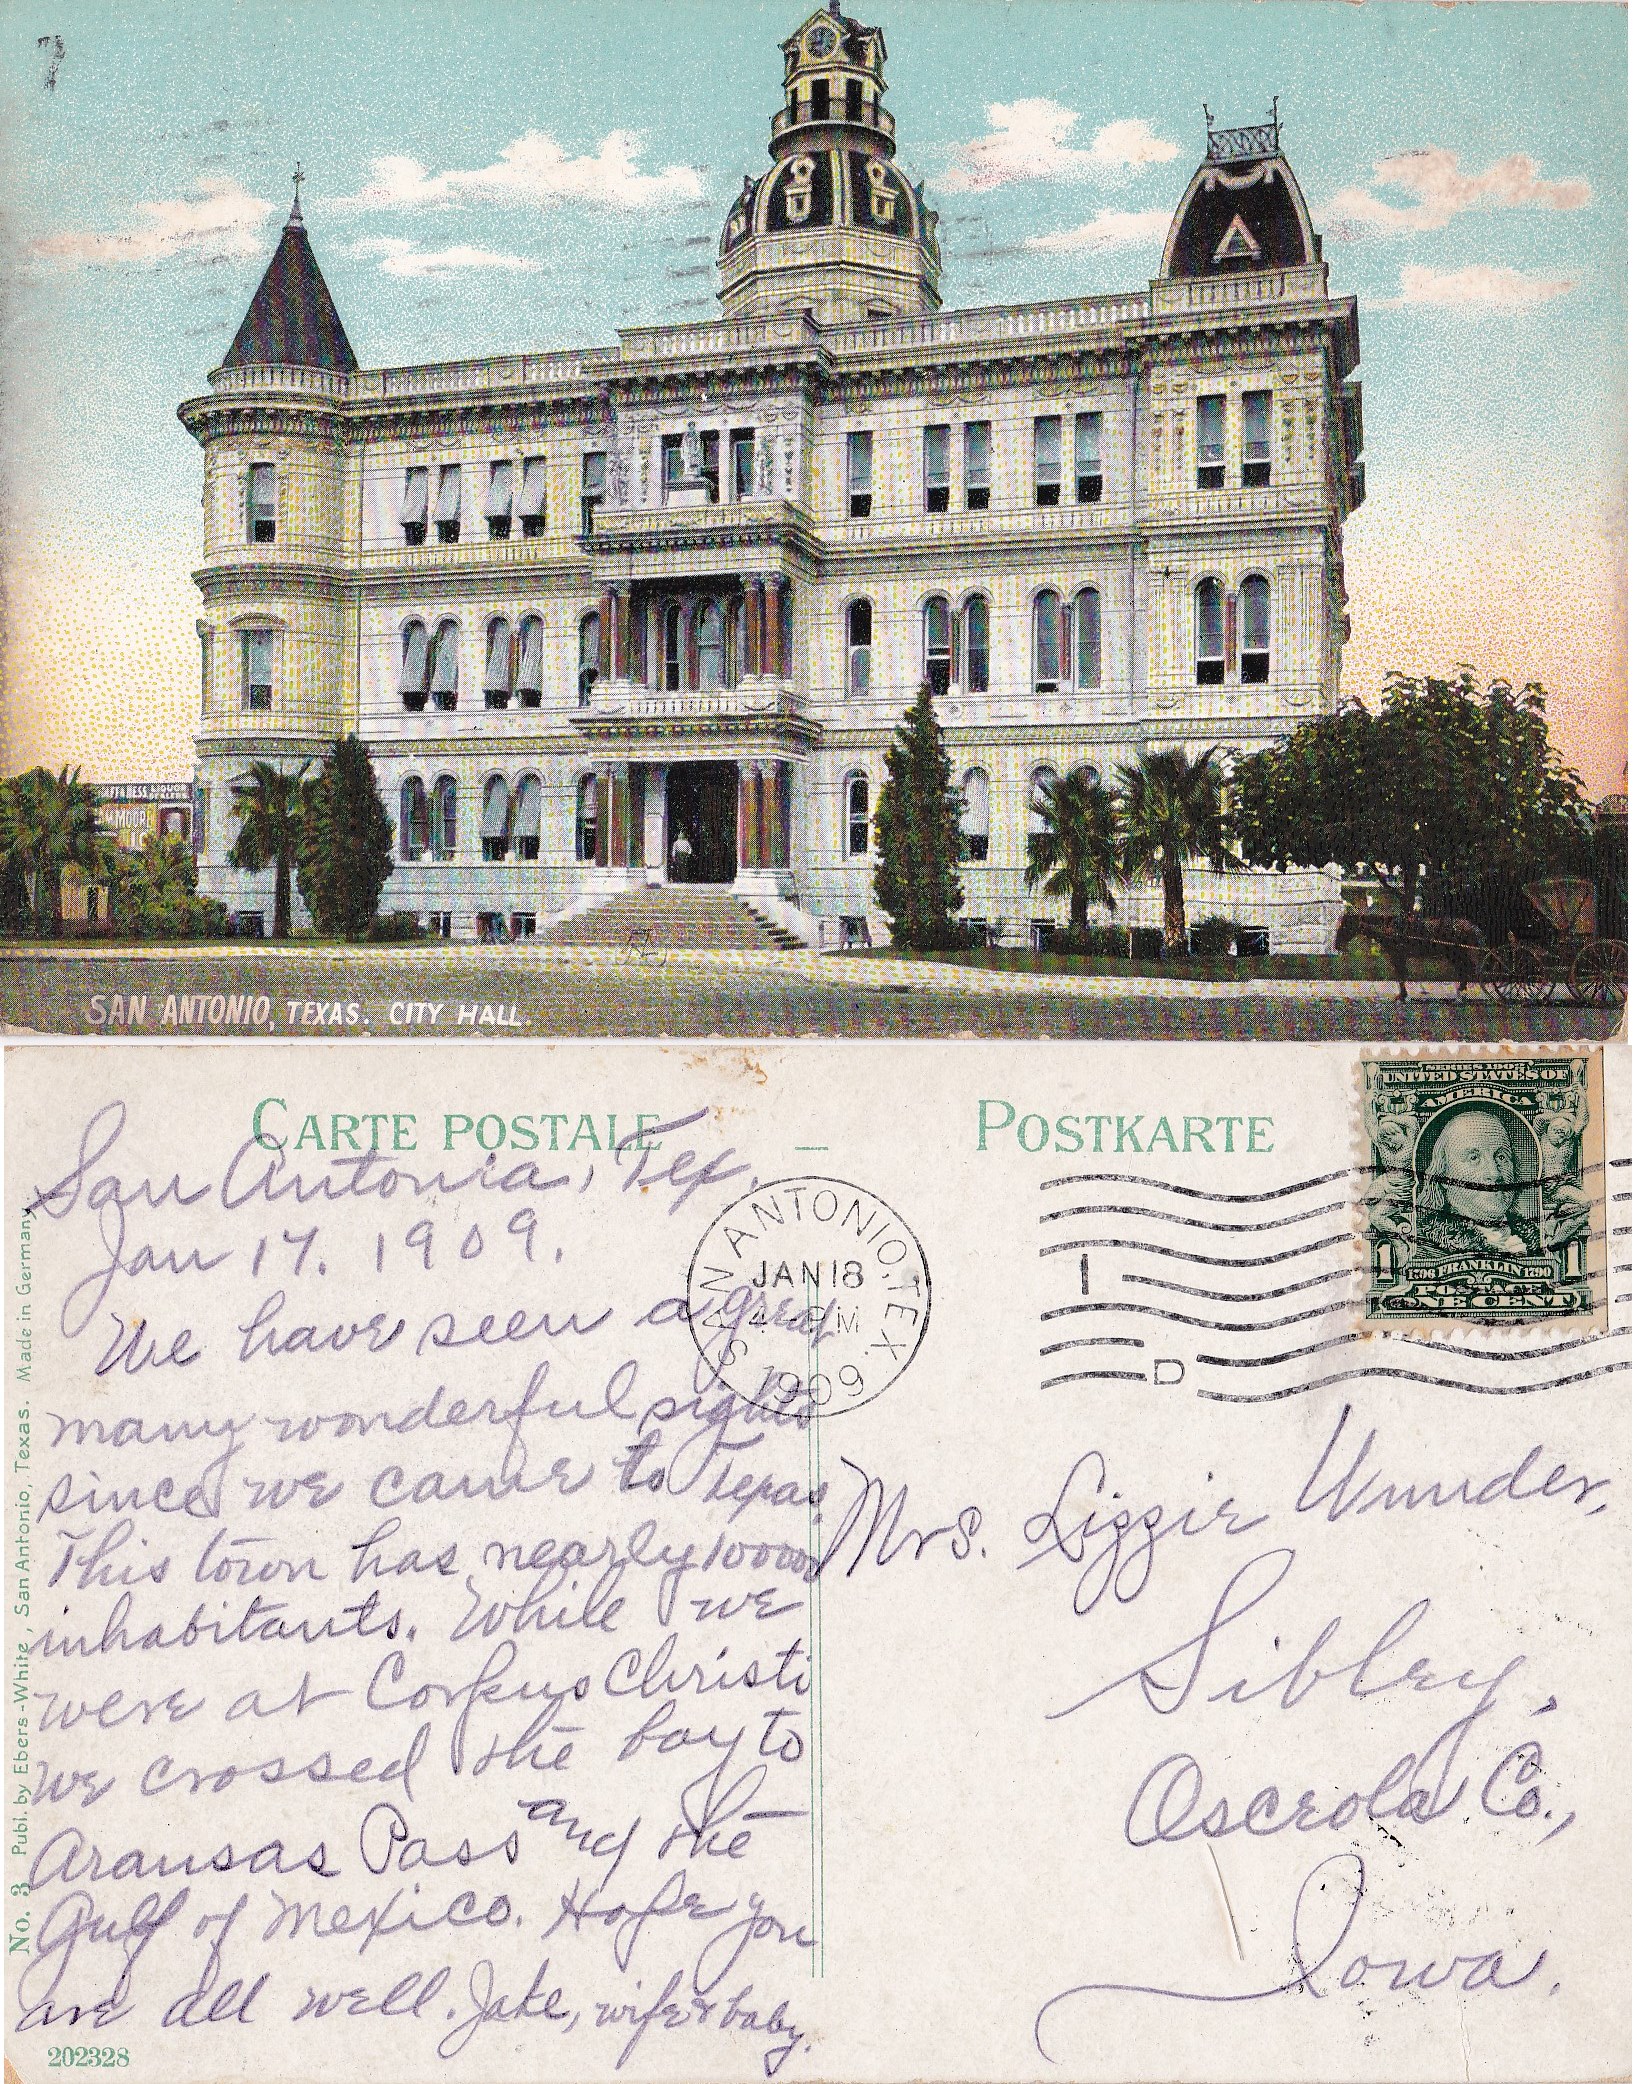 FT & HESS LIQUOR
DEALERS.
MOORE
SAN ANTONIO, TEXAS. CITY HALL.
CARTE POSTALE – POSTKARTE
San Antonia, Tex.
Jan 17. 1909.
We have seen a great
many wonderful sights
since we came to Texas.
This town has nearly 100000
inhabitants. While we
were at Corpus Christi
we crossed the bay to
Aransas Pass and the
Gulf of Mexico. Hope you
are all well. Jake, wife & baby.
202328
No. 3 Publ. by Ebers-White, San Antonio, Texas. Made in Germany.
SAN ANTONIO, TEX.
JAN 18
4 - PM
1909
1
D
SERIES 1902
UNITED STATES OF
AMERICA
1 1
1706 FRANKLIN 1790
POSTAGE
ONE CENT
Mrs. Lizzie Wunder,
Sibley,
Osceola Co.,
Iowa.